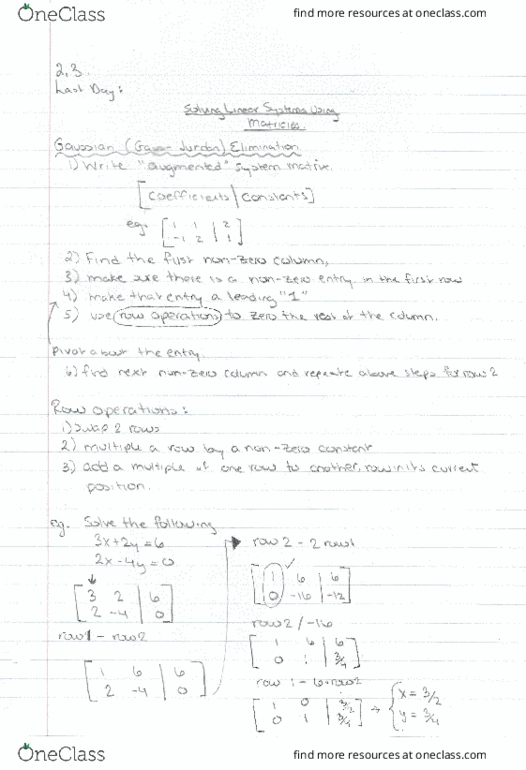 OneClass
find more resources at oneclass.com
2.3.
Last Day:
Solving Linear Systems Using
Matricies.
Gaussian (Gauss-Jurdon) Elimination
1) Write "augmented" system matrix.
[coefficients | constants]
eg. [ 1 1 | 2
-1 2 | 1 ]
2) Find the first non-zero column,
3) make sure there is a non-zero entry in the first row
4) make that entry a leading "1"
5) use row operations to zero the rest of the column.
Pivot about the entry
6) find next non-zero column and repeate above steps for row 2
Row operations:
1) swap 2 rows
2) multiple a row by a non-zero constant
3) add a multiple of one row to another row in its current
position.
eg. Solve the following
3x+2y=6
2x-4y=0
[ 3 2 | 6
2 -4 | 0 ]
row1 - row2
[ 1 6 | 6
2 -4 | 0 ]
row 2 - 2 row1
[ 1 6 | 6
0 -16 | -12 ]
row2 / -16
[ 1 6 | 6
0 1 | 3/4 ]
row 1 - 6 row2
[ 1 0 | 3/2
0 1 | 3/4 ] → { x = 3/2
y = 3/4
OneClass
find more resources at oneclass.com